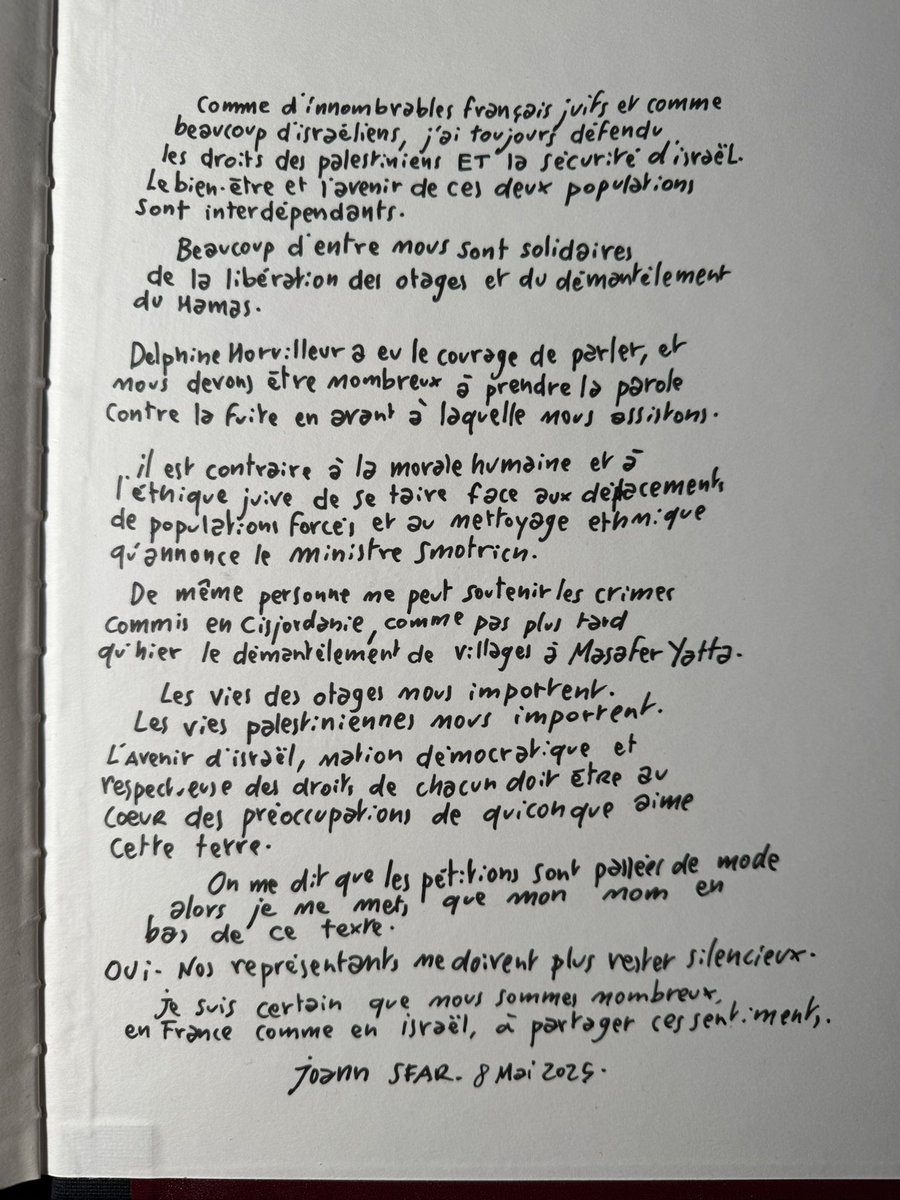 Comme d'innombrables français juifs et comme
beaucoup d'israéliens, j'ai toujours défendu
les droits des palestiniens ET la sécurité d'israël.
Le bien-être et l'avenir de ces deux populations
sont interdépendants.
Beaucoup d'entre nous sont solidaires
de la libération des otages et du démantèlement
du Hamas.
Delphine Horvilleur a eu le courage de parler, et
nous devons être nombreux à prendre la parole
contre la fuite en avant à laquelle nous assistons.
il est contraire à la morale humaine et à
l'éthique juive de se taire face aux déplacements
de populations forcés et au nettoyage ethnique
qu'annonce le ministre Smotrich.
De même personne ne peut soutenir les crimes
commis en Cisjordanie, comme pas plus tard
qu'hier le démantèlement de villages à Masafer Yatta.
Les vies des otages nous importent.
Les vies palestiniennes nous importent.
L'Avenir d'israël, nation démocratique et
respectueuse des droits de chacun doit ÊTRE au
coeur des préoccupations de quiconque aime
cette terre.
On me dit que les pétitions sont passées de mode
alors je ne mets que mon nom en
bas de ce texte.
OUI. Nos représentants ne doivent plus rester silencieux.
je suis certain que nous sommes nombreux,
en France comme en israël, à partager ces sentiments.
joann SFAR. 8 Mai 2025.